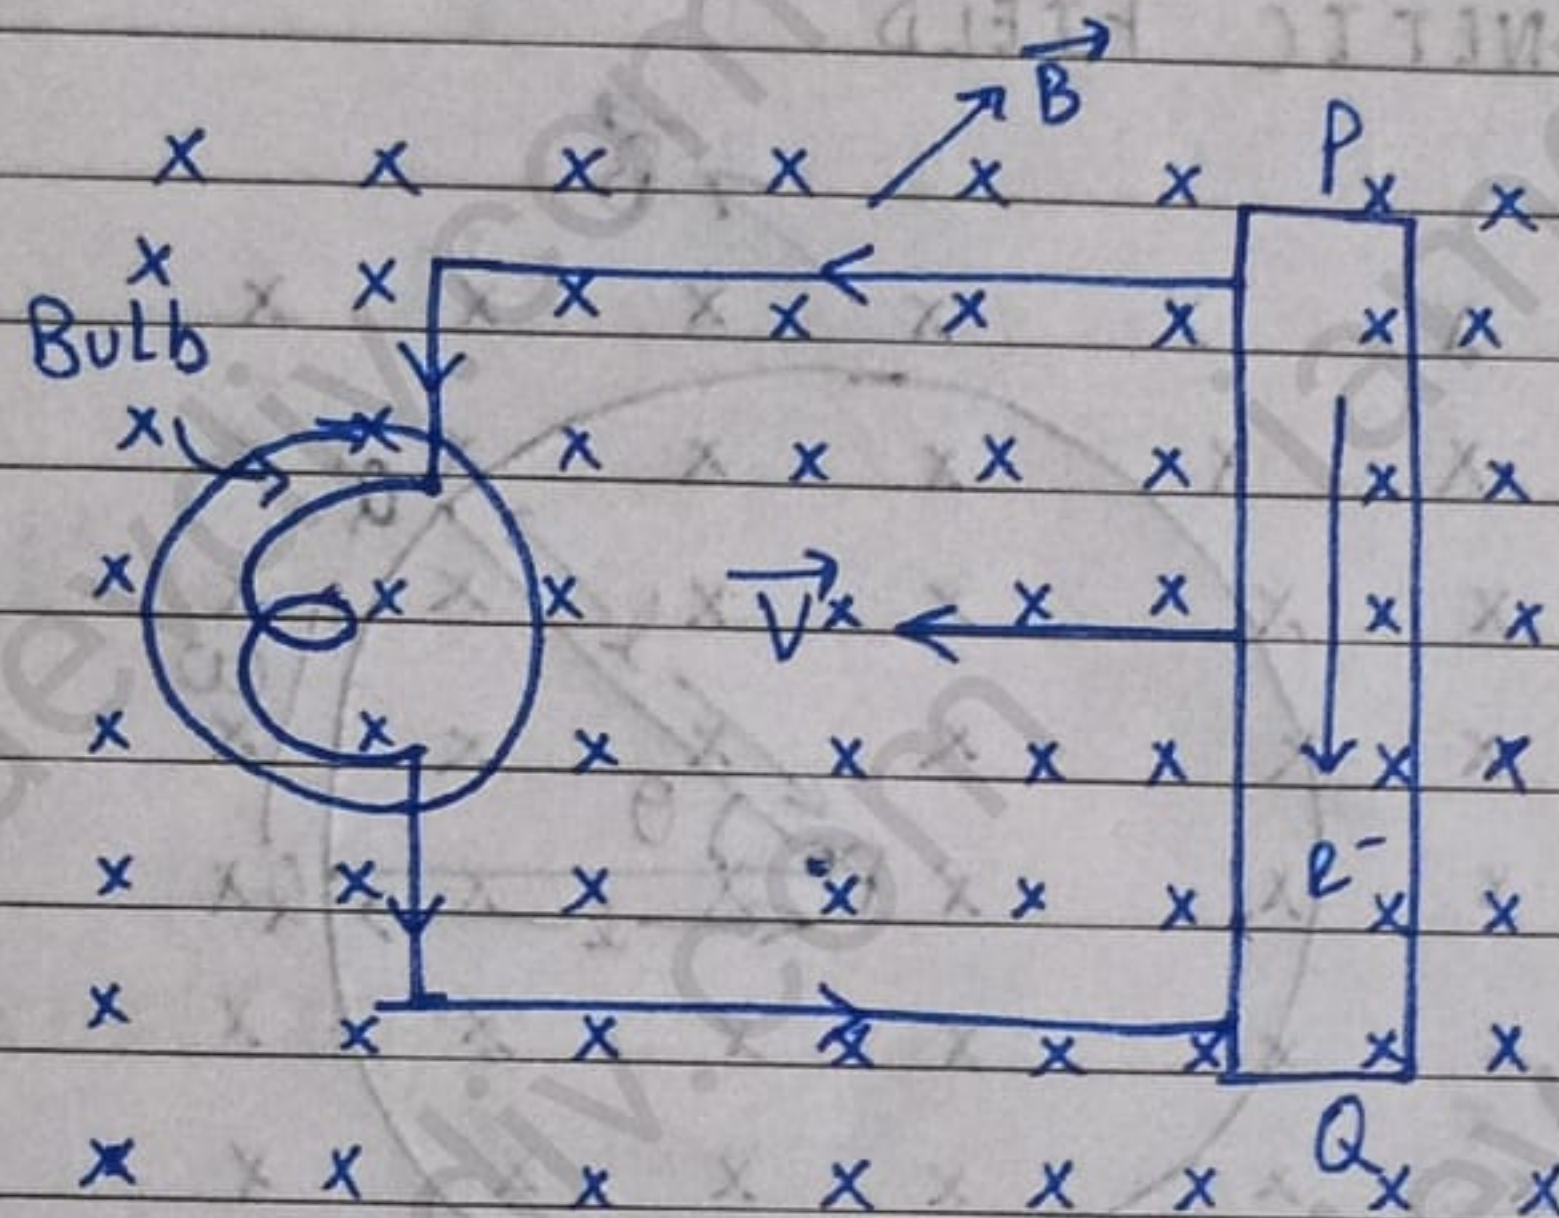 B
P
Bulb
V
e⁻
Q